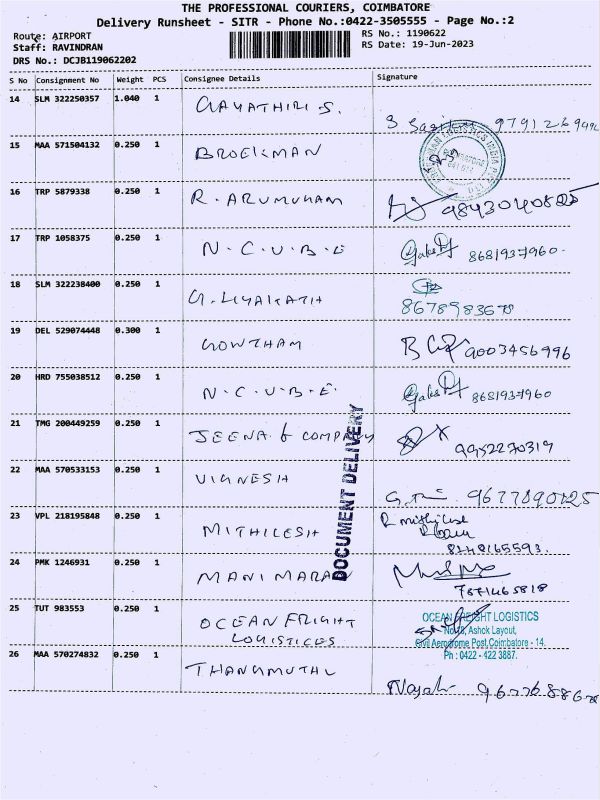 THE PROFESSIONAL COURIERS, COIMBATORE
Delivery Runsheet - SITR - Phone No.:0422-3505555 - Page No.:2
Route: AIRPORT
RS No.: 1190622
Staff: RAVINDRAN
RS Date: 19-Jun-2023
DRS No.: DCJB119062202
S No Consignment No Weight PCS Consignee Details Signature
14 SLM 322250357 1.040 1 GAYATHIRI S. 
15 MAA 571504132 0.250 1 BROEKMAN
16 TRP 5879338 0.250 1 R. ARUMUHAM
17 TRP 1058375 0.250 1 N.C.U.B.E 8681937960
18 SLM 322238400 0.250 1 G. LIYAKATH
19 DEL 529074448 0.300 1 GOWTHAM 9003456996
20 HRD 755038512 0.250 1 N.C.U.B.E. 8681937960
21 TMG 200449259 0.250 1 JEENA & COMPANY 9952270319
22 MAA 570533153 0.250 1 VIGNESH
23 VPL 218195848 0.250 1 MITHILESH
24 PMK 1246931 0.250 1 MANIMARAN
25 TUT 983553 0.250 1 OCEAN FRIGHT
LOGISTICES
OCEAN FREIGHT LOGISTICS
Ashok Layout,
Civil Aerodrome Post, Coimbatore - 14.
Ph : 0422 - 422 3887.
26 MAA 570274832 0.250 1 THANGMUTHU
DOCUMENT DELIVERY